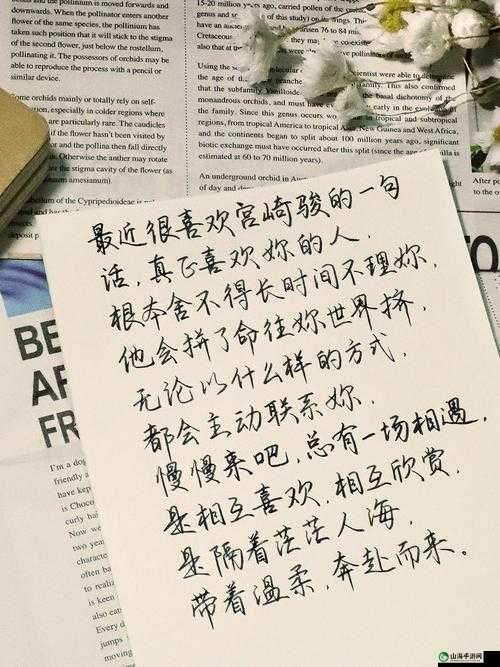 and the pollinium is moved forwards and
downwards. When the pollinator enters another
flower of the same species, the pollinium has
taken such position that it will stick to the stigma
of the second flower, just below the rostellum,
pollinating it. The possessors of orchids may be
able to reproduce the process with a pencil or
similar device.
Some orchids mainly or totally rely on self-
pollination, especially in colder regions where
pollinators are particularly rare. The caudicles
of the flower hasn't been visited by
and the pollina then fall directly
Otherwise the anther may rotate
the stigma cavity of the flower (as
amesianum).
of the Cypripedioideae is
deposit p
15-20 million years ago, carried pollen of the
genus and
76 to 84
Cretaceous
also that
Using the
scientist were able to determine
the age of
This also confirmed
that the subfamily Vanilloideae
the basal dichotomy of
monandrous orchids, and must have
early in the evolution
the family. Since this genus occurs
in tropical and subtropical
regions, from tropical America to tropical Asia, New Guinea and West Africa,
and the continents began to split about 100 million years ago, significant
biotic exchange must have occurred after this split (since the age
estimated at 60 to 70 million years).
An underground orchid in
of day and
After
最近很喜欢宫崎骏的一句
话，真正喜欢妳的人，
根本舍不得长时间不理妳，
他会拼了命往妳世界挤，
无论以什么样的方式，
都会主动联系妳，
慢慢来吧，总有一场相遇，
是相互喜欢，相互欣赏，
是隔着茫茫人海，
带着温柔，奔赴而来。
BE
AF
FR
I'm a dog
friendly a
have kep
is Choco
curly hai
Now we
two year
characte
often ba
to realiz
is keen
also eat
Every d
jumps
morning
TO
山海手游网